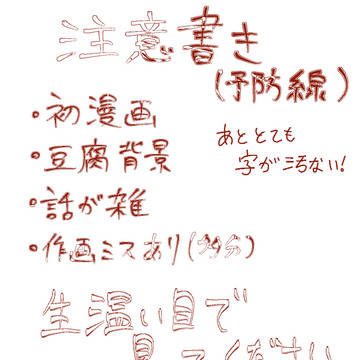 注意書き
(予防線)
・初漫画
・豆腐背景
・話が雑
・作画ミスあり(多分)
あととても
字が汚ない!
生温い目で
見てください